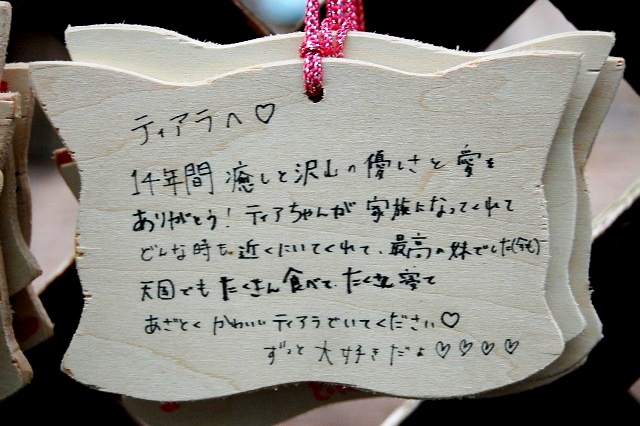 ティアラへ♡
14年間 癒しと沢山の優しさと愛を
ありがとう！ティアちゃんが家族になってくれて
どんな時も近くにいてくれて、最高の妹でした(今も)
天国でもたくさん食べて、たくさん寝て
あざとくかわいいティアラでいてください♡
ずっと大好きだよ♡♡♡♡